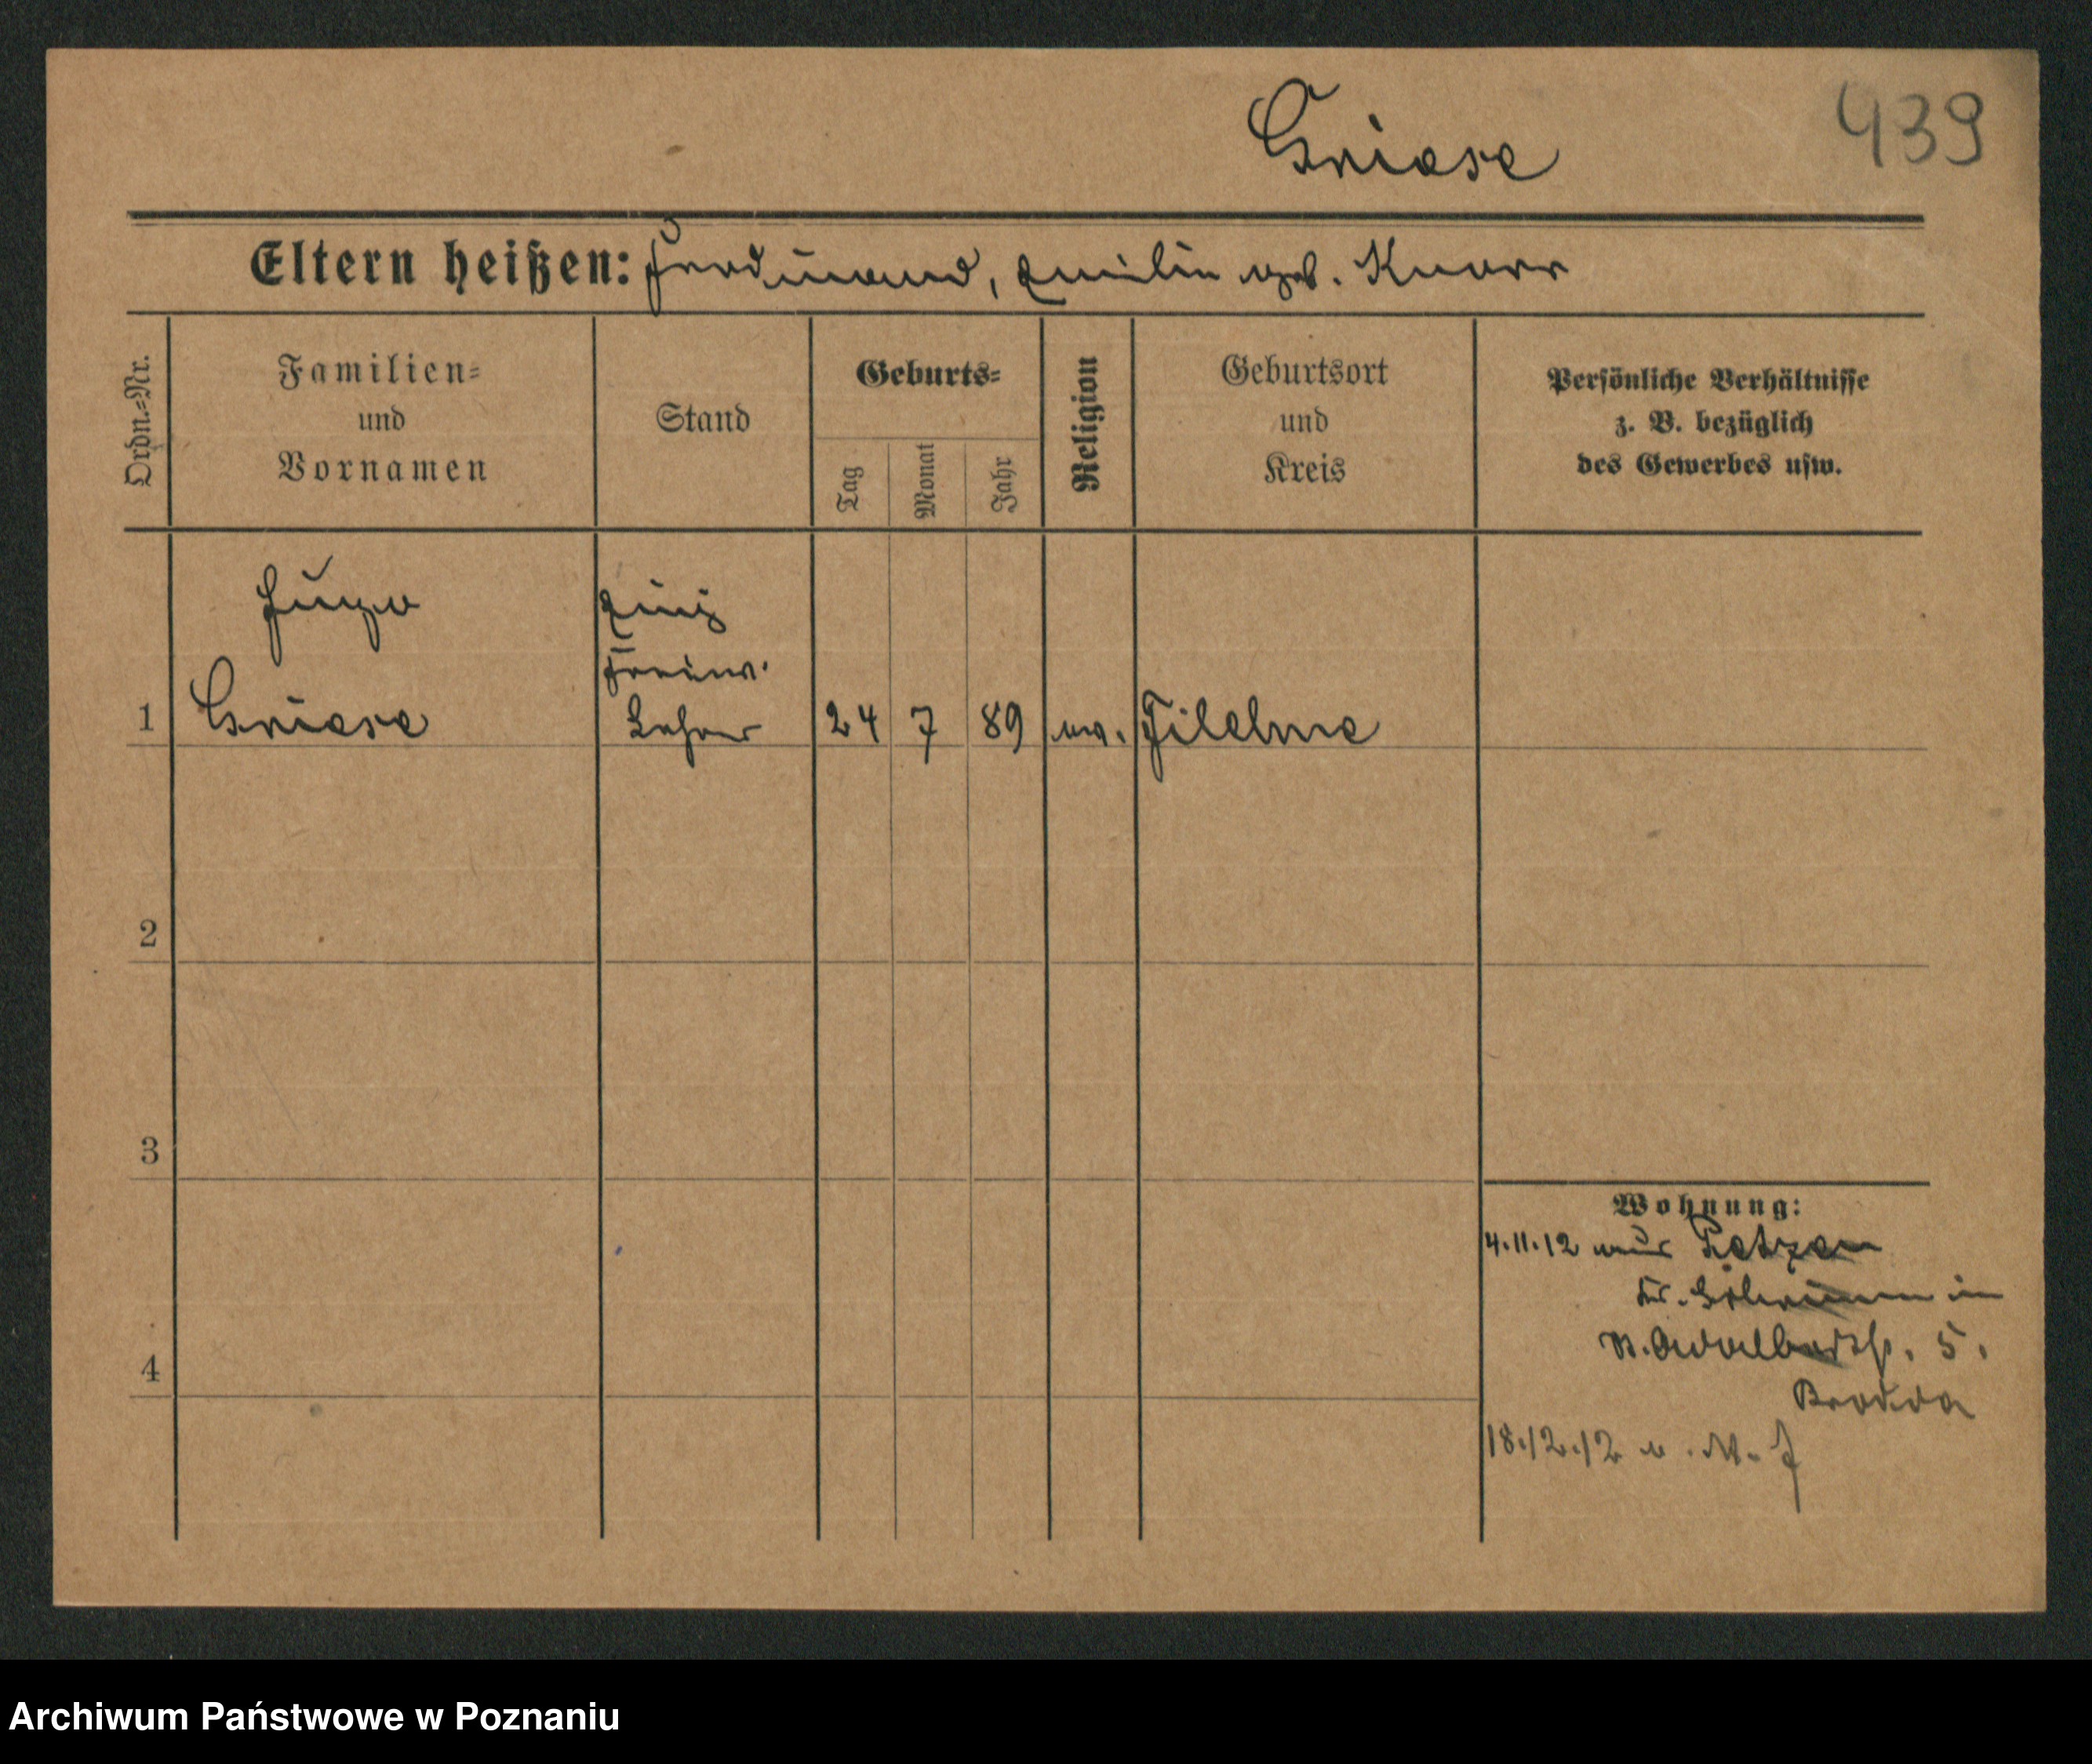 Griese
439
Eltern heißen: Ferdinand, Emilie geb. Knorr
Ordn.-Nr.
Familien-
und
Vornamen
Stand
Geburts-
Tag
Monat
Jahr
Religion
Geburtsort
und
Kreis
Persönliche Verhältnisse
z. B. bezüglich
des Gewerbes usw.
Hugo
Einj
Freiw.
1 Griese Lehrer 24 7 89 ev. Filehne
2
3
4
Wohnung:
4.11.12 aus
in
5.
18.12.12
Archiwum Państwowe w Poznaniu